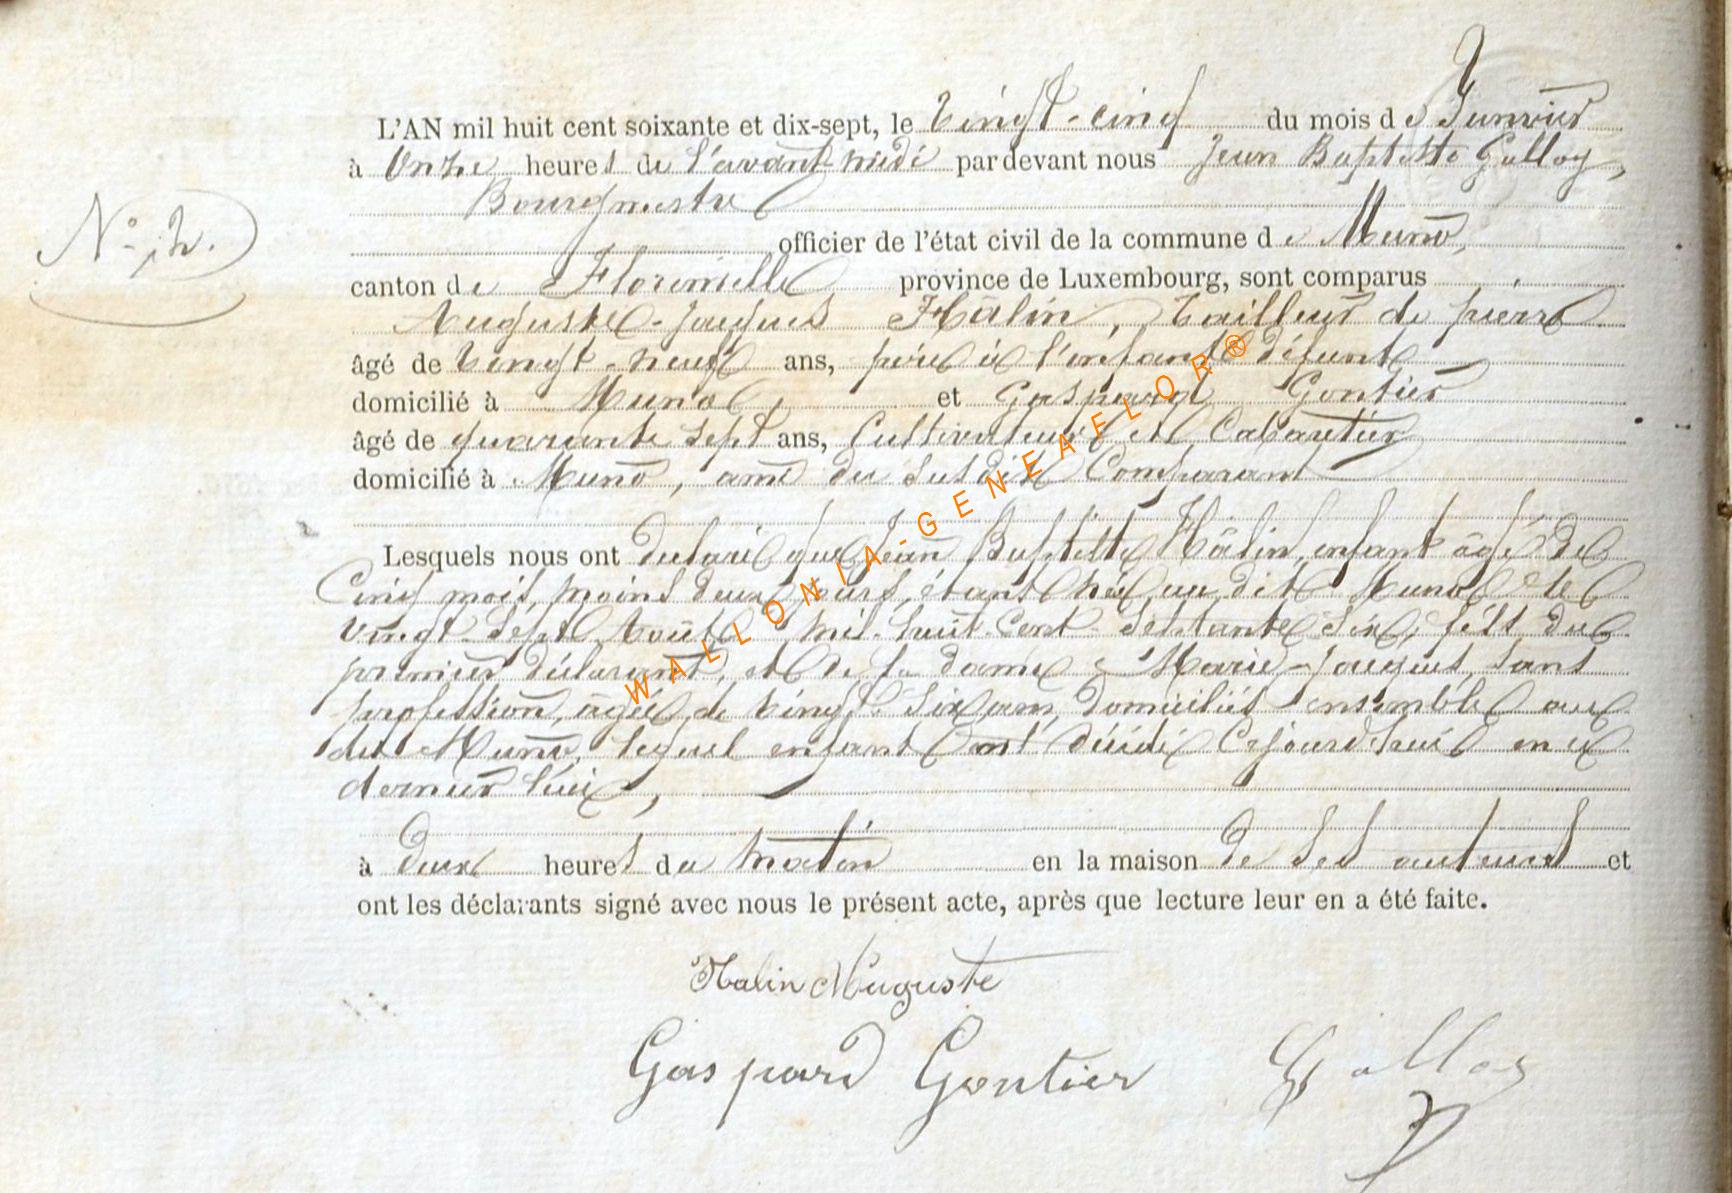 L'AN mil huit cent soixante et dix-sept, le Vingt-cinq du mois de Janvier
à Onze heures de l'avant-midi pardevant nous Jean Baptiste Galloy,
Bourgmestre
N° 2.
officier de l'état civil de la commune de Muno,
canton de Florenville province de Luxembourg, sont comparus
Auguste-Jacques Hâlin, Tailleur de pierre
âgé de Vingt-neuf ans, père à l'enfant défunt
domicilié à Muno, et Gaspard Gontier
âgé de quarante sept ans, Cultivateur et Cabaretier
domicilié à Muno, ami du susdit Comparant
Lesquels nous ont déclaré que Jean Baptiste Hâlin, enfant âgé de
Cinq mois, moins deux jours, étant né au dit Muno le
vingt-sept Août mil-huit-cent-septante-six, fils du
premier déclarant, et de la dame Marie-Jacques, sans
profession, âgée de vingt-six ans, domiciliés ensemble au
dit Muno, lequel enfant est décédé Cejourd'hui en ce
dernier lieu,
à deux heures du matin en la maison de ses auteurs et
ont les déclarants signé avec nous le présent acte, après que lecture leur en a été faite.
Halin Auguste
Gaspard Gontier Galloy
WALLONIA-GENEAFLOR®